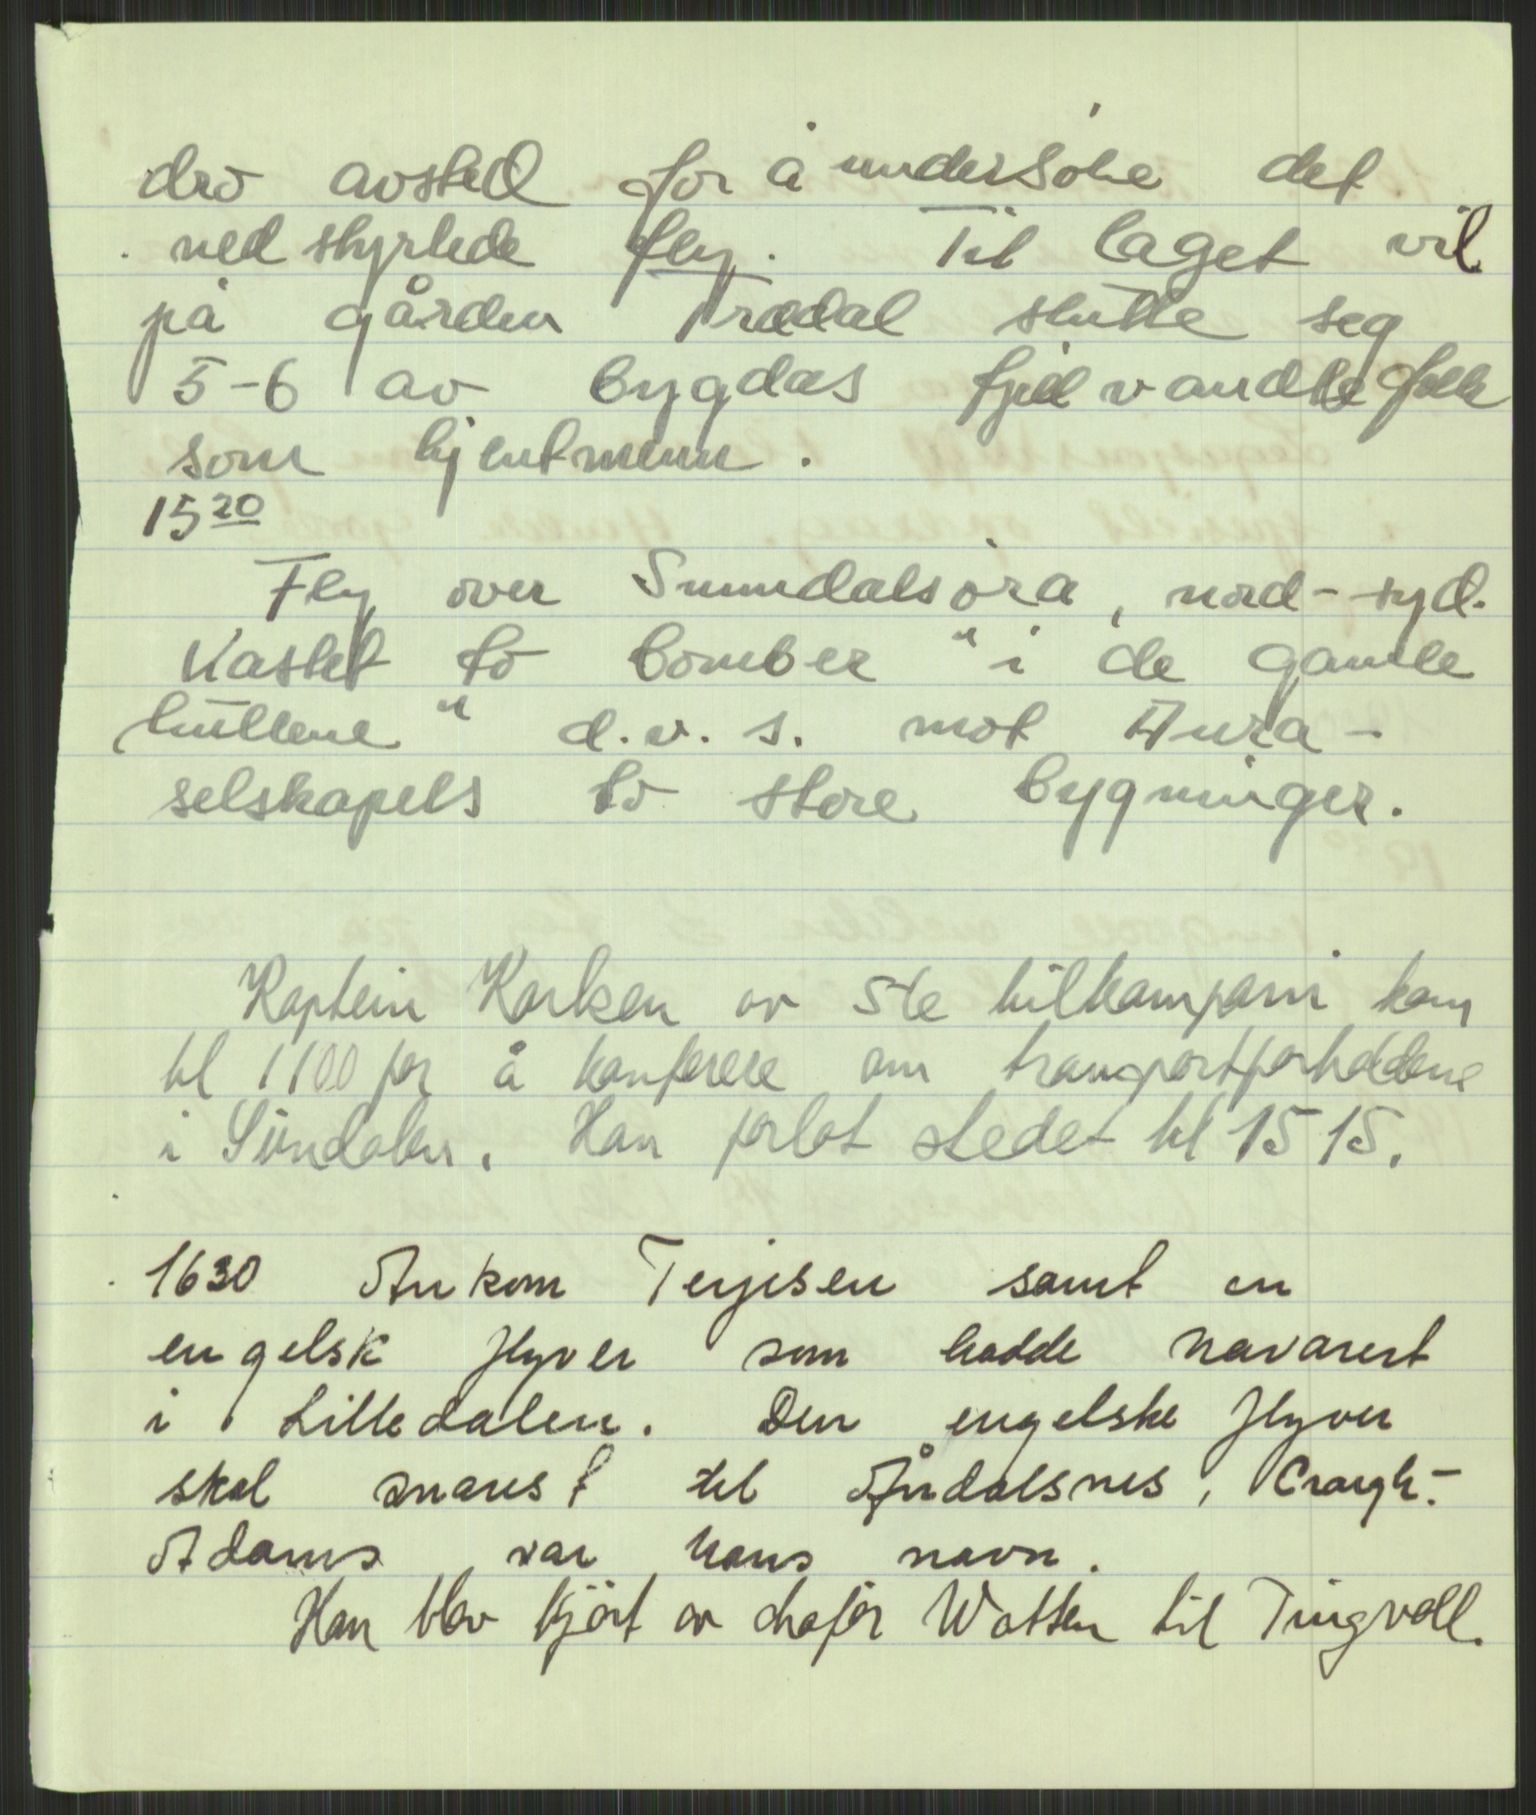 dro avsted for å undersöke det
nedstyrtede fly. Til laget vil
på gården Trædal slutte seg
5-6 av bygdas fjellvandte folk
som kjentmenn.
15 20
Fly over Sunndalsöra, nord-syd.
Kastet to bomber "i de gamle
hullene" d.v.s. mot Aura-
selskapets to store bygninger.
Kaptein Karlsen av 5te bilkompani kom
kl 1100 for å konferere om transportforholdene
i Sŭndalen. Han forlot stedet kl 1515.
1630 Ankom Terjesen samt en
engelsk flyver som hadde havarert
i Lilledalen. Den engelske flyver
skal snarest til Åndalsnes,
Adams var hans navn.
Han blev kjört av chaför Watten til Tingvoll.